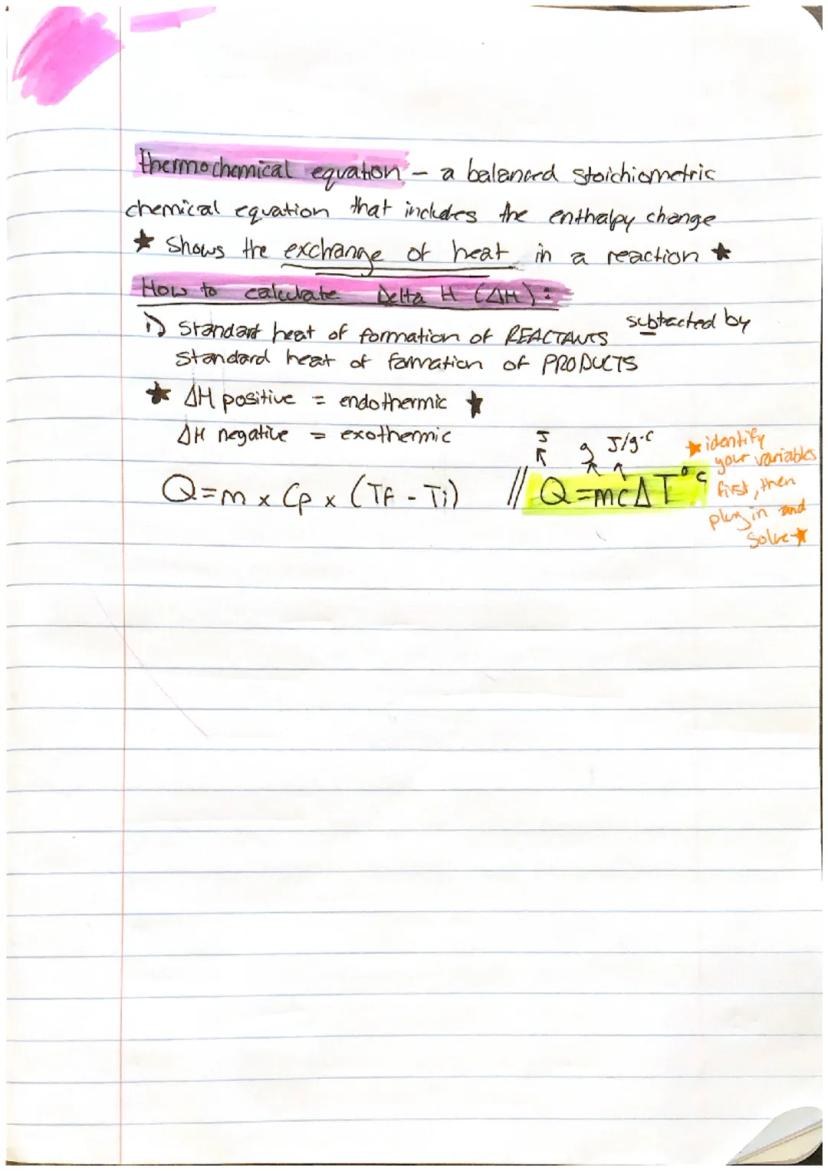 thermochemical equation - a balanced stoichiometric
chemical equation that includes the enthalpy change
★ Shows the exchange of heat in a reaction ★
How to calculate Delta H (ΔH):
1) Standard heat of formation of REACTANTS subtracted by
Standard heat of formation of PRODUCTS
★ ΔH positive = endothermic ★
ΔH negative = exothermic
J g J/g·c
Q=m x Cp x (Tf - Ti) // Q=mcΔT°c
★identify
your variables
first, then
plug in and
solve★